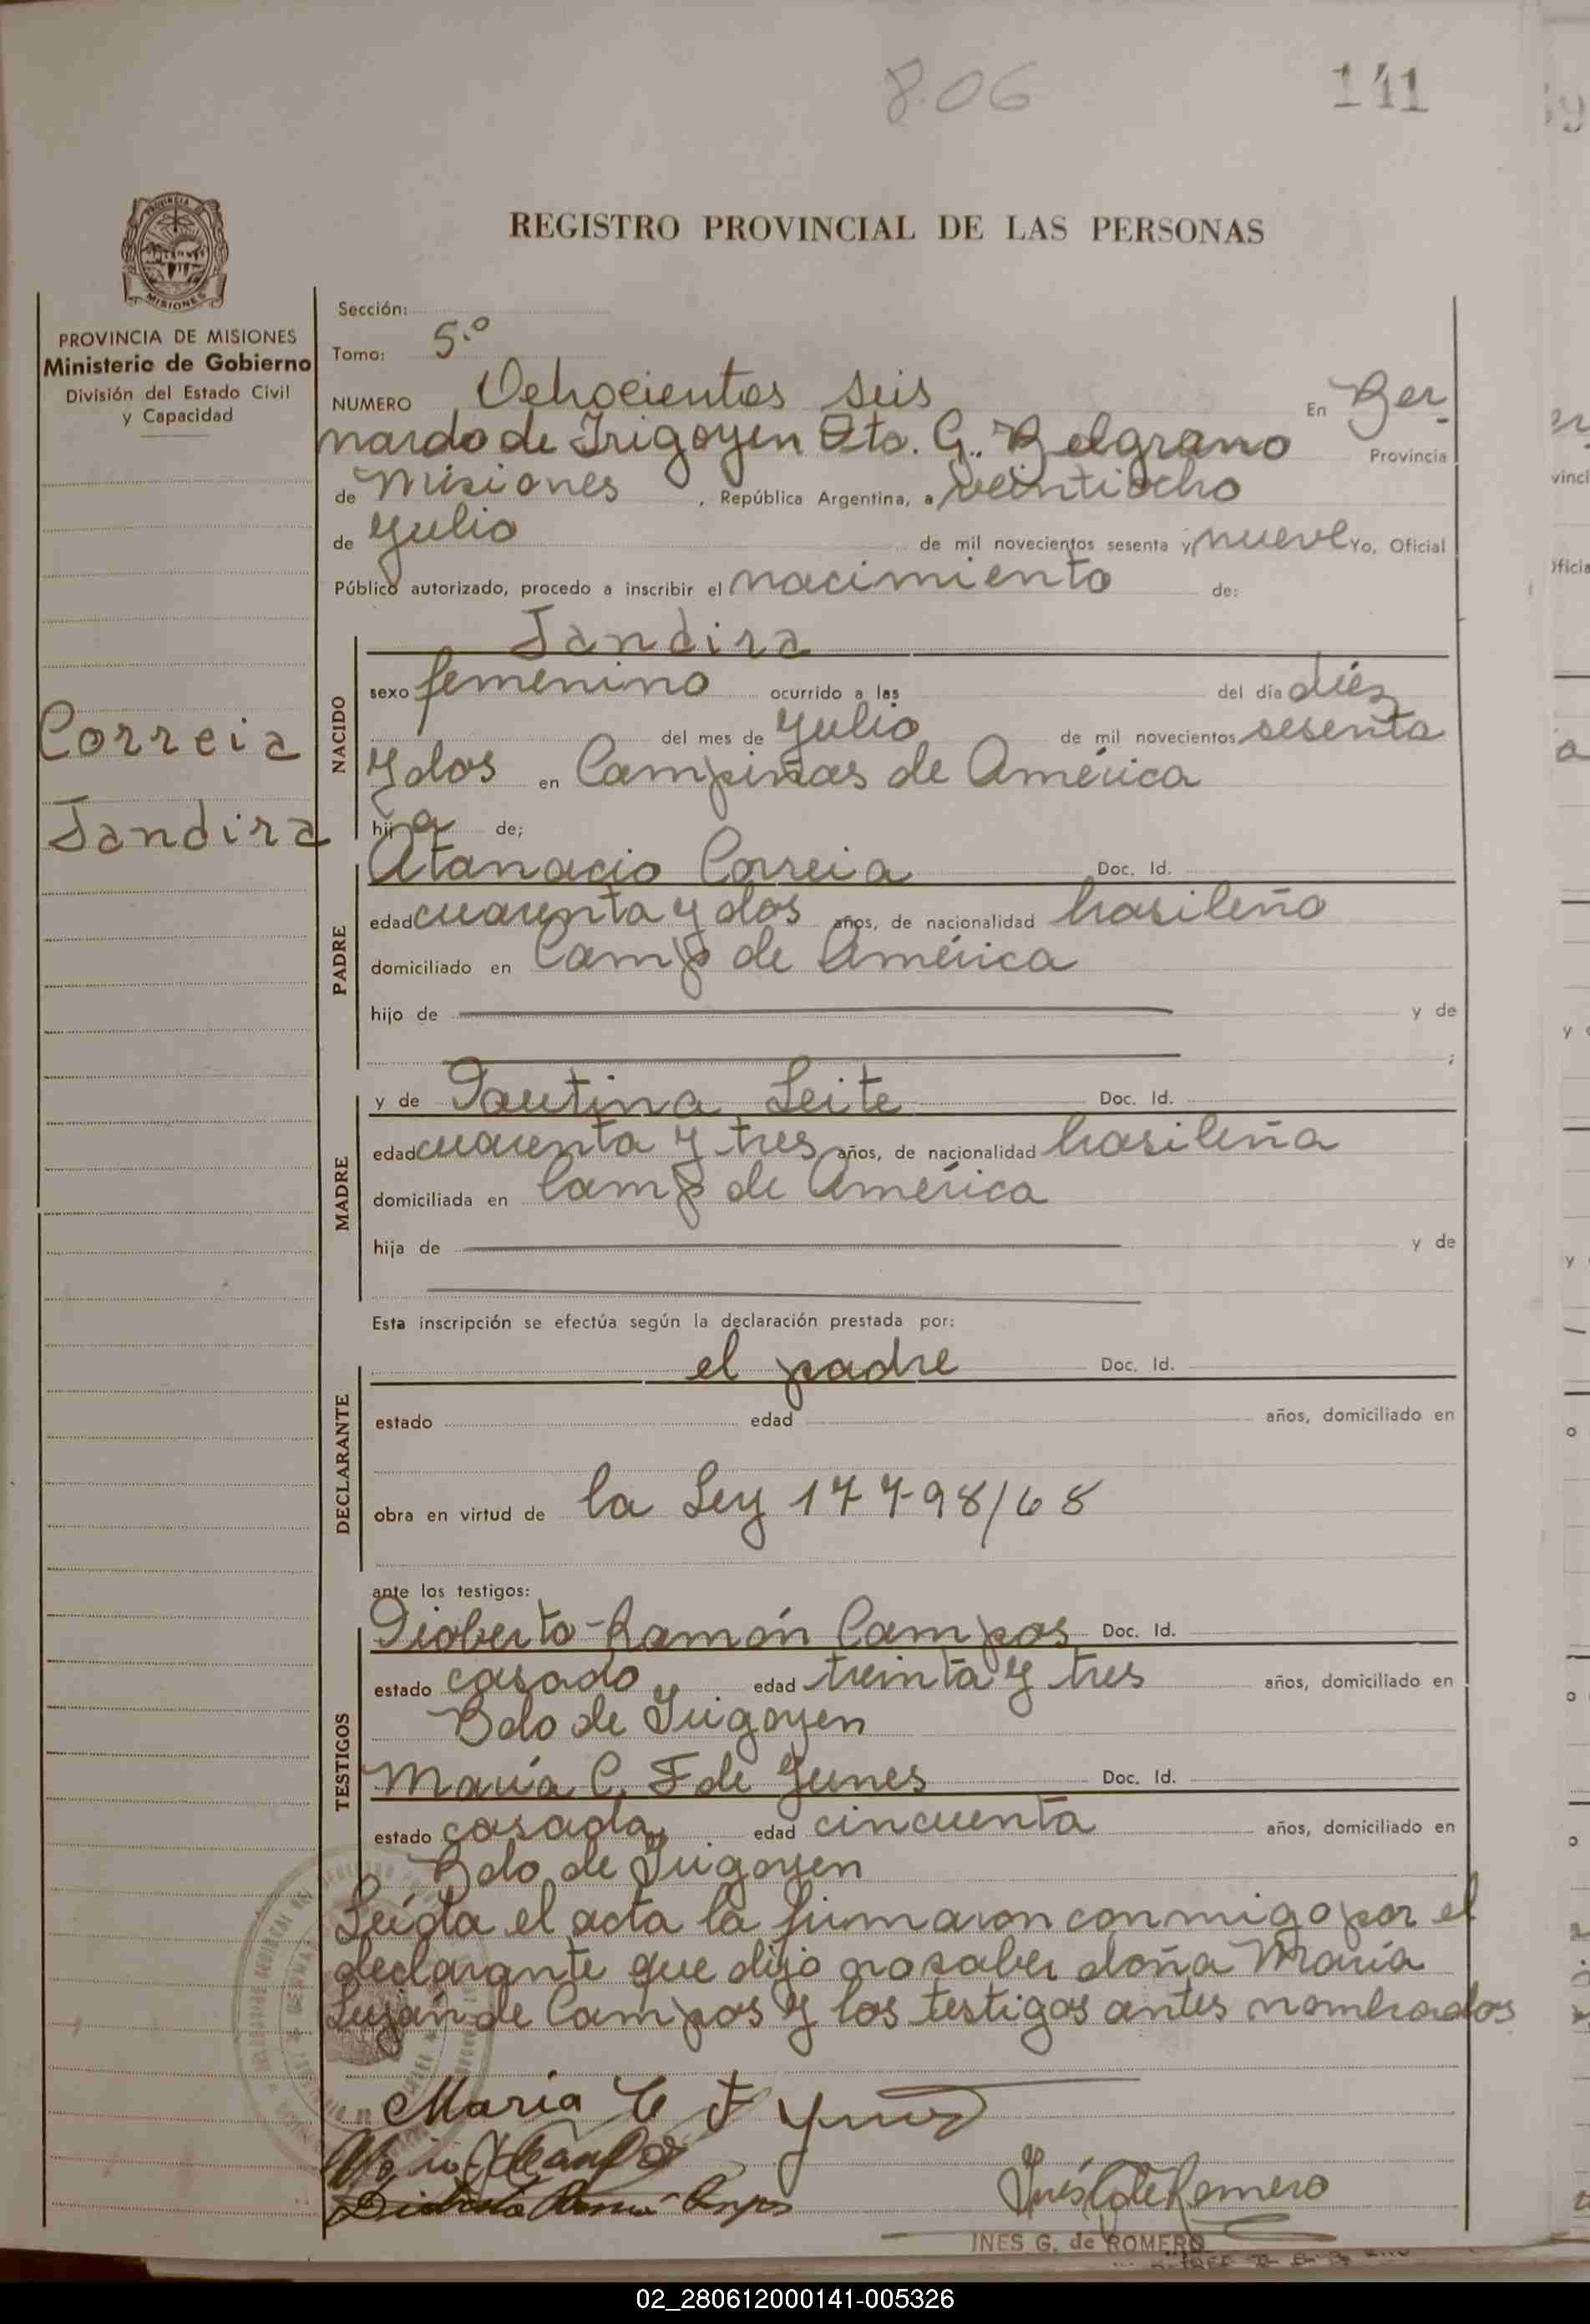 8.06
141
REGISTRO PROVINCIAL DE LAS PERSONAS
MISIONES
PROVINCIA DE MISIONES
Ministerio de Gobierno
División del Estado Civil
y Capacidad
Correia
Jandira
Sección:
Tomo: 5.º
NUMERO Ochocientos seis En Ber
nardo de Irigoyen Dto. G. Belgrano Provincia
de Misiones, República Argentina, a veintiocho
de Julio de mil novecientos sesenta y nueve Yo, Oficial
Público autorizado, procedo a inscribir el nacimiento de:
Jandira
NACIDO
sexo femenino ocurrido a las del día diez
del mes de Julio de mil novecientos sesenta
y dos en Campinas de América
hija de;
PADRE
Atanacio Correia Doc. Id.
edad cuarenta y dos años, de nacionalidad brasileño
domiciliado en Camp de América
hijo de y de
;
MADRE
y de Leite Doc. Id.
edad cuarenta y tres años, de nacionalidad brasileña
domiciliada en Camp de América
hija de y de
Esta inscripción se efectúa según la declaración prestada por:
DECLARANTE
el padre Doc. Id.
estado edad años, domiciliado en
obra en virtud de la Ley 17798/68
ante los testigos:
TESTIGOS
Ramón Campos Doc. Id.
estado casado edad treinta y tres años, domiciliado en
Bdo de Irigoyen
María C. F de Yunes Doc. Id.
estado casada edad cincuenta años, domiciliado en
Bdo de Irigoyen
Leída el acta la firmaron conmigo por el
declarante que dijo no saber doña María
Luján de Campos y los testigos antes nombrados
Maria C F
Inés G de Romero
INES G. de ROMERO
02_280612000141-005326